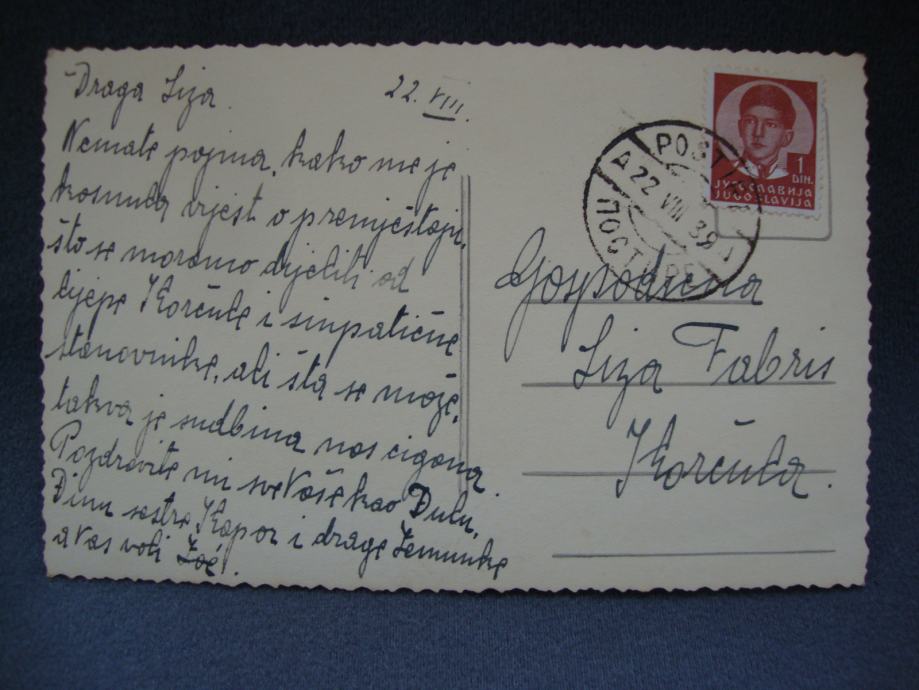 Draga Liza.
22. VIII.
Nemate pojma, kako me je
kosnula vijest o premještaju,
što se moramo dijeliti od
lijepe Korčule i simpatične
stanovnike, ali šta se može,
takva je sudbina nas cigana.
Pozdravite mi sve Vaše kao Đulu,
Dinu sestre Kapor i drage Zemunke
a Vas voli
POSTIRE
22 VIII 39
ПОСТИРЕ
1
DIN.
ЈУГОСЛАВИЈА
JUGOSLAVIJA
Gospođica
Liza Fabris
Korčula.